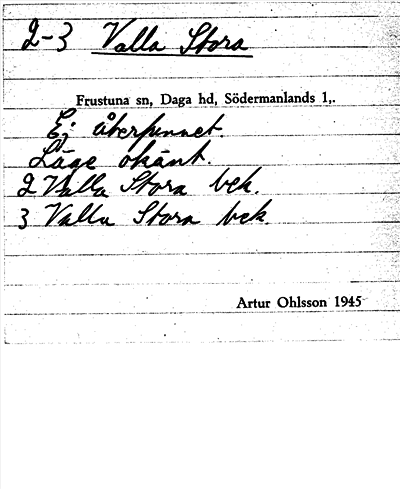 2-3 Valla Stora
Frustuna sn, Daga hd, Södermanlands l,.
Ej återfunnet.
Läge okänt.
2 Valla Stora bek.
3 Valla Stora bek.
Artur Ohlsson 1945